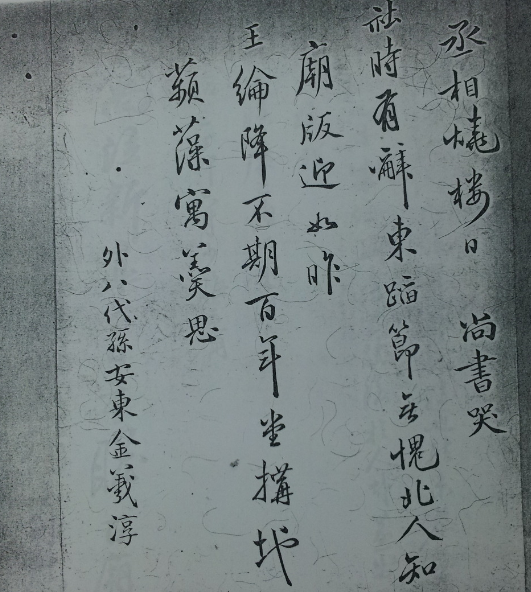 丞相燒樓日 尚書哭
社時有辭東蹈節無愧北人知
廟版迎如昨
王綸降不期百年堂搆地
蘋藻寓羹思
外八代孫安東金羲淳